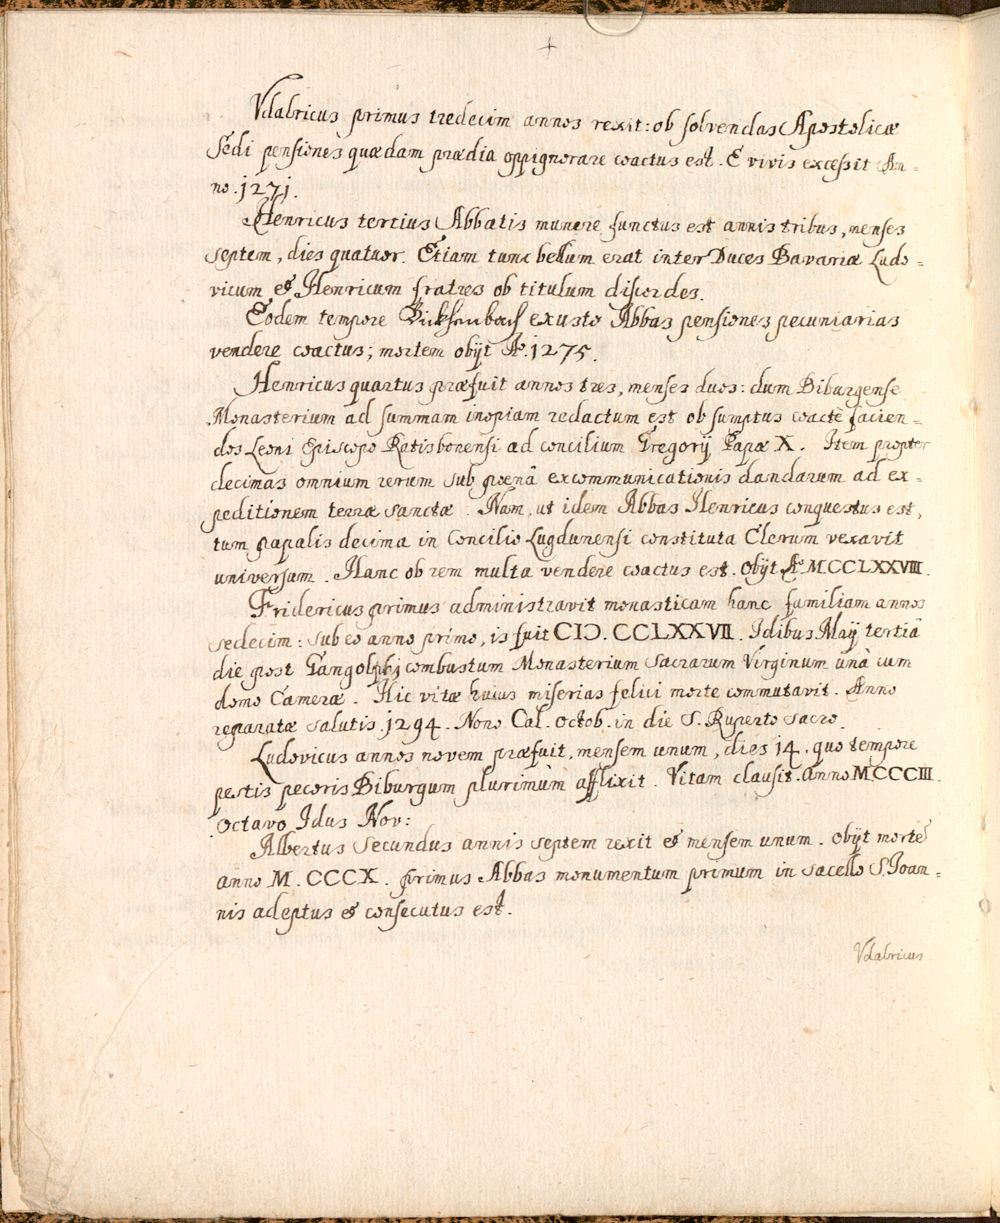 +
Vdalricus primus tredecim annos rexit: ob solvendas Apostolicæ
Sedi pensiones quædam prædia oppignorare coactus est. E vivis excessit An-
no. 1271.
Henricus tertius Abbatis munere functus est annis tribus, menses
septem, dies quatuor. Etiam tunc bellum erat inter Duces Bavariæ Ludo-
vicum & Henricum fratres ob titulum discordes.
Eodem tempore exusto Abbas pensiones pecuniarias
vendere coactus; mortem obijt Aº. 1275.
Henricus quartus præfuit annos tres, menses duos: dum Biburgense
Monasterium ad summam inopiam redactum est ob sumptus coactè facien-
dos Leoni Episcopo Ratisbonensi ad concilium Gregorij Papæ X. Item propter
decimas omnium rerum sub pœnâ excommunicationis dandarum ad ex-
peditionem terræ sanctæ. Nam, ut idem Abbas Henricus conquestus est,
tum papalis decima in Concilio Lugdunensi constituta Clerum vexavit
universum. Hanc ob rem multa vendere coactus est. Obijt Aº MCCLXXVIII.
Fridericus primus administravit monasticam hanc familiam annos
sedecim: sub eo anno primo, is fuit CIↃ. CCLXXVII. Idibus Maij tertiâ
die post Gangolphi combustum Monasterium Sacrarum Virginum unà cum
domo Cameræ. Hic vitæ huius miserias felici morte commutavit. Anno
reparatæ salutis. 1294. Nono Cal. Octob. in die S. Ruperto sacro.
Ludovicus annos novem præfuit, mensem unum, dies 14. quo tempore
pestis pecoris Biburgum plurimùm afflixit. Vitam clausit. Anno MCCCIII.
Octavo Idus Nov:
Albertus Secundus annis septem rexit & mensem unum. Obijt morte
anno M. CCCX. primus Abbas monumentum primum in sacello S. Joan-
nis adeptus & consecutus est.
Vdalricus